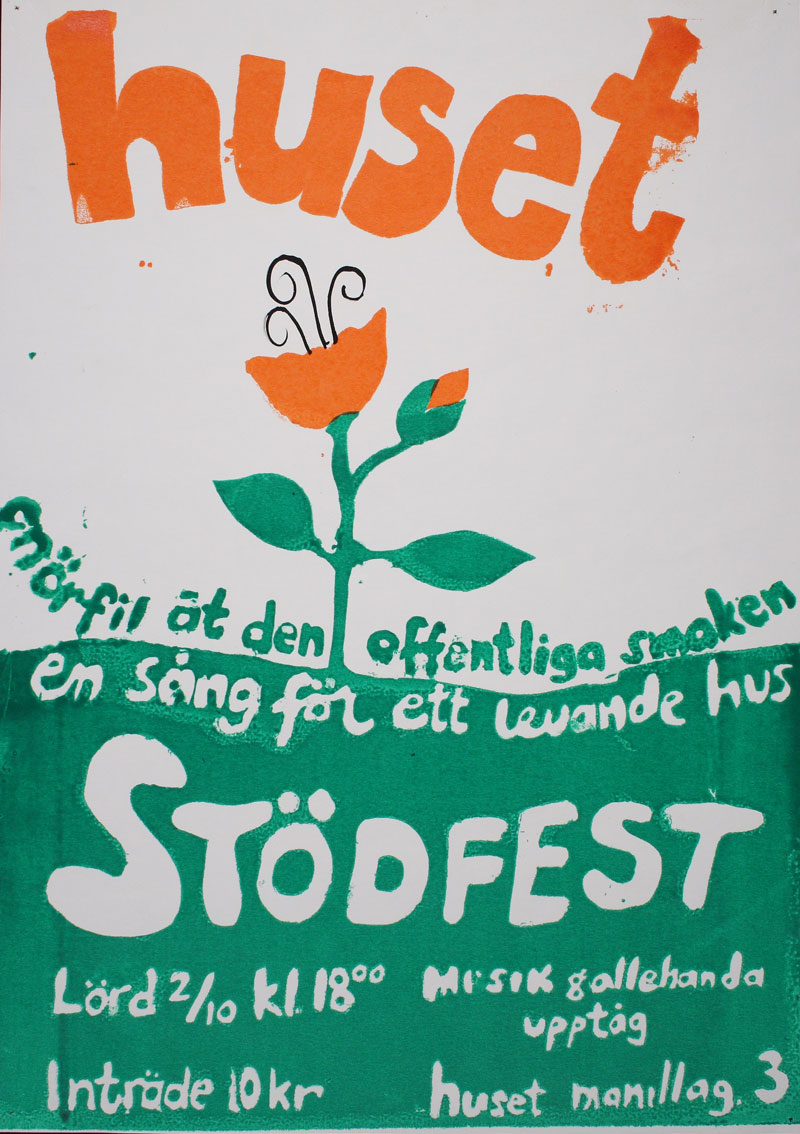 huset
mörfil åt den offentliga smaken
en sång för ett levande hus
STÖDFEST
Lörd 2/10 kl. 18⁰⁰
MUSIK & allehanda
upptåg
Inträde 10 kr
huset manillag. 3